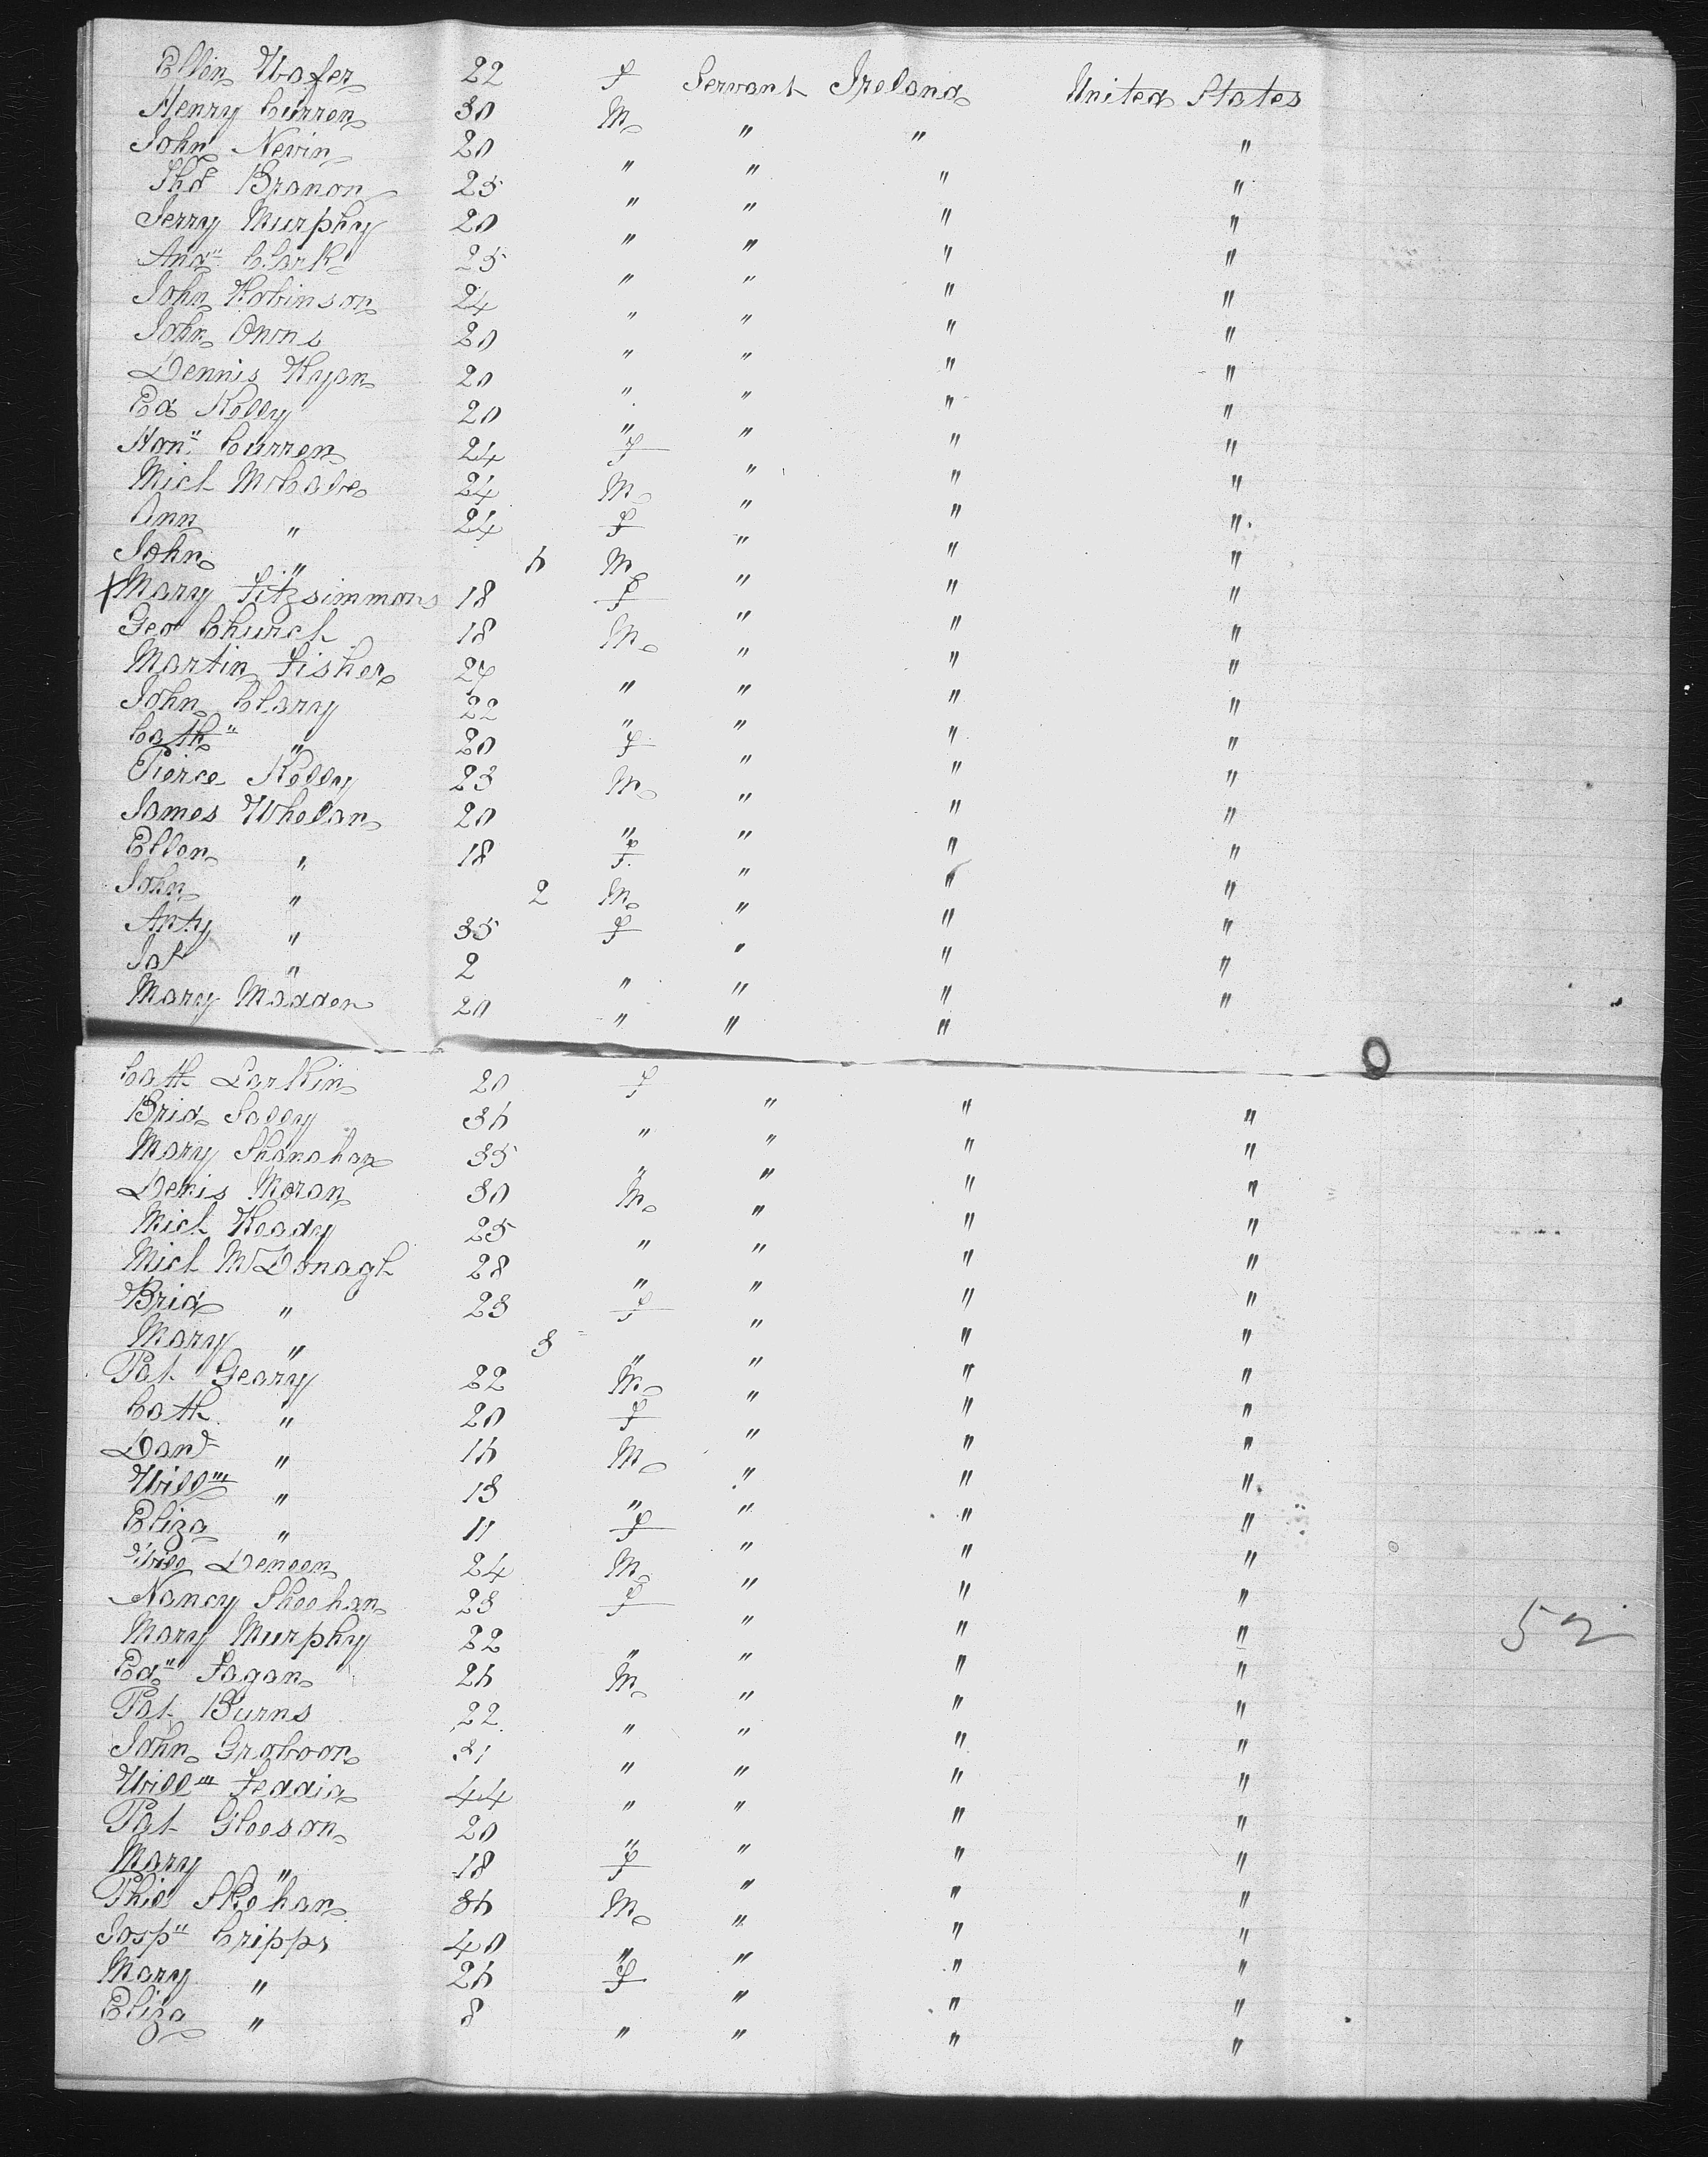 Ellen Wafer 22 f Servant Ireland United States
Henry Curren 30 M " "
John Nevin 20 " " " "
Thos Branon 25 " " " "
Jerry Murphy 20 " " " "
Andw Clark 25 " " " "
John Robinson 24 " " " "
John Owns 20 " " " "
Dennis Ryan 20 " " " "
Ed Kelly 20 " " " "
Honh Curren 24 f " " "
Mich McCabe 24 M " " "
Ann " 24 f " " "
John " 6 M " " "
X Mary Fitzsimmons 18 f " " "
Geo Church 18 M " " "
Martin Fisher 24 " " " "
John Clary 22 " " " "
Cathn " 20 f " " "
Pierce Kelly 23 M " " "
James Whelan 20 " " " "
Ellen " 18 f " " "
John " 2 M " " "
Anty " 35 f " " "
" 2 " " " "
Mary Madden 20 " " "
Cath Larkin 20 f " " "
Brid 36 " " " "
Mary Shanahan 35 " " " "
Denis Moran 30 M " " "
Mich Keady 25 " " " "
Mich McDonagh 28 " " " "
Brid " 23 f " " "
Mary " 3 " " " "
Pat Geary 22 M " " "
Cath " 20 f " " "
Danl " 16 M " " "
Willm " 13 " " " "
Eliza " 11 f " " "
Will Deneen 24 M " " "
Nancy Sheehan 23 f " " "
Mary Murphy 22 " " " "
Edd Fagan 26 M " " "
Pat Burns 22 " " " "
John 31 " " " "
Willm 44 " " " "
Pat Gleeson 20 " " " "
Mary " 18 f " " "
Phil Skehan 36 M " " "
Josph Cripps 40 " " " "
Mary " 26 f " " "
Eliza " 8 " " " "
52